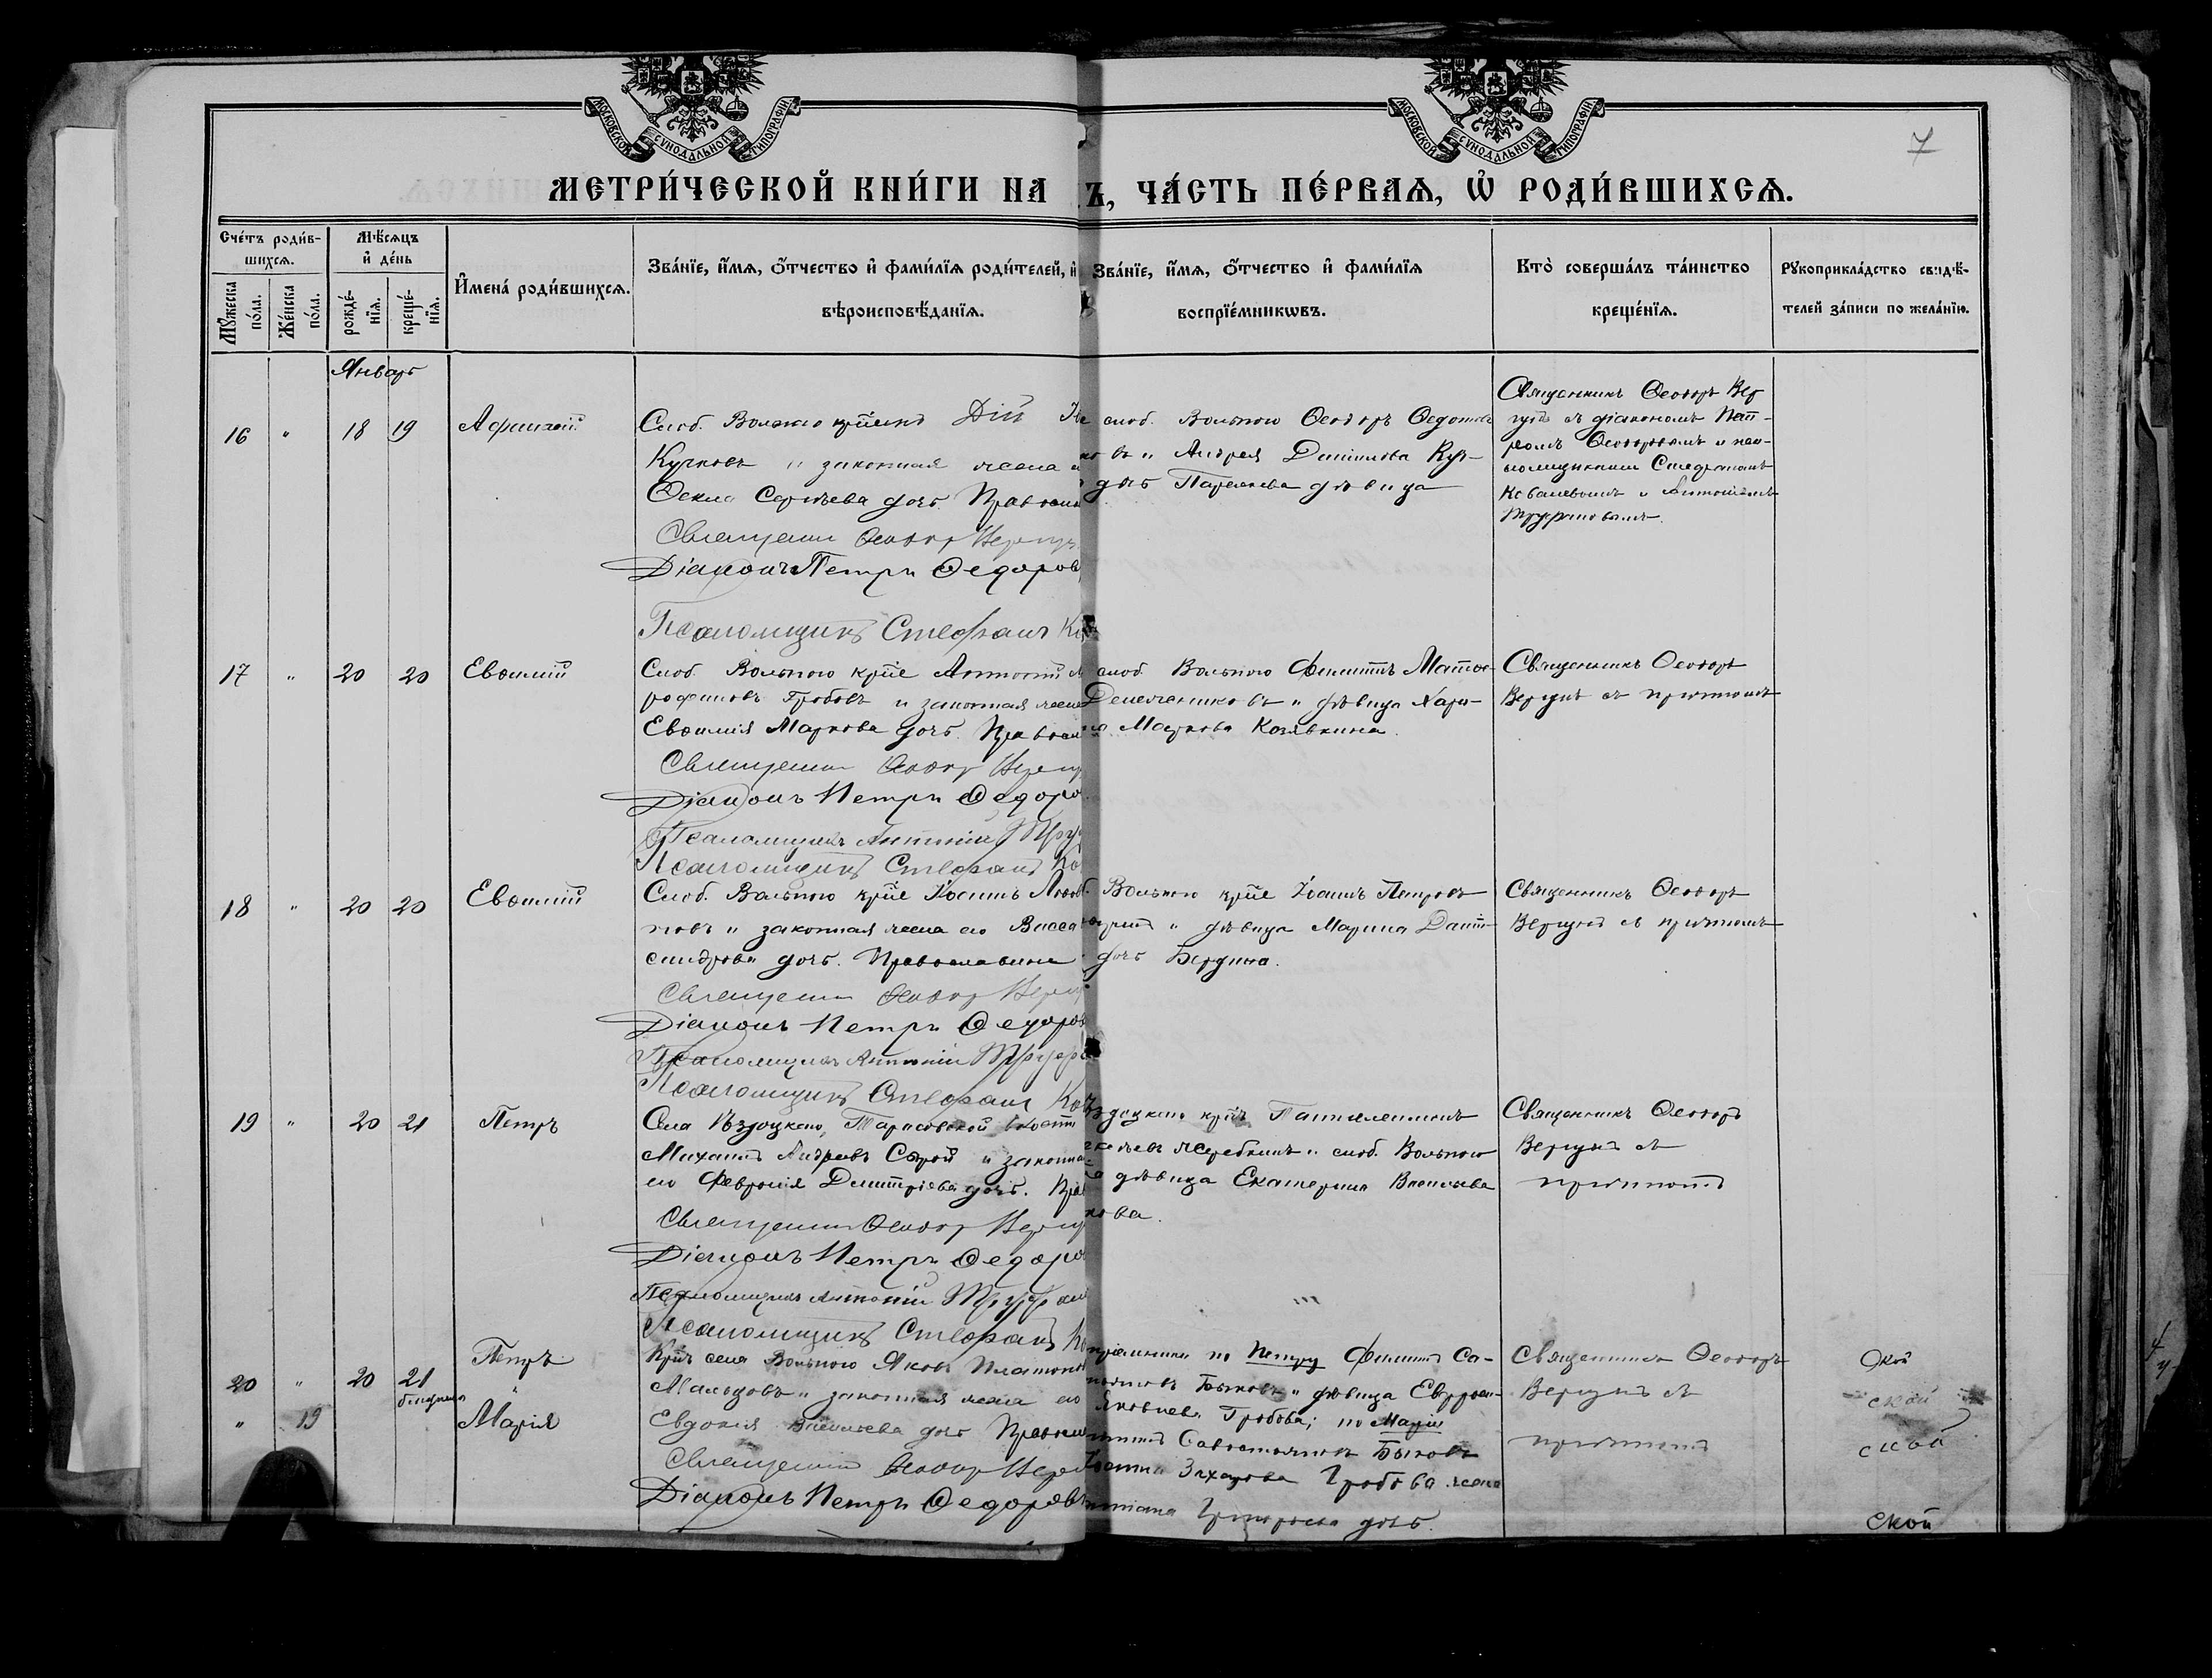 МОСКОВСКОЙ СѴНОДАЛЬНОЙ ТИПОГРАФІИ
МОСКОВСКОЙ СѴНОДАЛЬНОЙ ТИПОГРАФІИ
7
МЕТРИ́ЧЕСКОЙ КНИ́ГИ НА
Ъ, ЧА́СТЬ ПЕ́РВАѦ, Ѽ РОДИ́ВШИХСѦ.
Сче́тъ роди́в-
шихсѧ.
Мꙋ́жеска по́ла.
Же́нска по́ла.
Мѣ́сѧцъ
и҆ де́нь
рожде́-нїѧ.
креще́-нїѧ.
И҆мена̀ роди́вшихсѧ.
Зва́нїе, и҆́мѧ, о҆́тчество и҆ фами́лїѧ роди́телей, и҆
вѣроисповѣ́данїѧ.
Зва́нїе, и҆́мѧ, о҆́тчество и҆ фами́лїѧ
воспрїе́мникѡвъ.
Кто̀ соверша́лъ та́инство
креще́нїѧ.
Рꙋкоприкла́дство свидѣ́-
телей за́писи по жела́нїю.
Январь
16 " 18 19
Слоб. Вольного Дій
Кучковъ и законная жена
Ѳекла Сергѣева дочь. Правосла
Священни Ѳеодор Вергун
Діаконъ Петръ Ѳедоров
Псаломщикъ Стефанъ Ко
слоб. Вольного Ѳеодоръ Ѳедотов
въ и Андрея Даніилова Куч-
дочь дѣвица
Священникъ Ѳеодоръ Вер
гунъ съ діакономъ Пет-
ромъ Ѳеодоровымъ и пса-
ломщиками Стефаномъ
Ковалевымъ и Антоніемъ
Труфановымъ.
17 " 20 20 Евѳимій
Слоб. Вольного крѣе Антоній
рофановъ Гробовъ и законная жена
Евѳимія Маркова дочь. Правосла
Священни Ѳеодор Вергу
Діаконъ Петръ Ѳедоро
Псаломщикъ Антоній Труф
Псаломщикъ Стефанъ Ко
слоб. Вольного Филиппъ Матѳе-
и дѣвица Хари-
Маркова Козявкина.
Священникъ Ѳеодоръ
Вергунъ съ причтомъ
18 " 20 20 Евѳимій
Слоб. Вольного крѣе Іоаннъ
новъ и законная жена его Васса
сандрова дочь. Православные
Священни Ѳеодор Вергу
Діаконъ Петръ Ѳедоров
Псаломщикъ Антоній Труфа
Псаломщикъ Стефанъ Ков
Вольного крѣе Іоаннъ Петровъ
и дѣвица Марина Дани-
дочь Бердина.
Священникъ Ѳеодоръ
Вергунъ съ причтомъ
19 " 20 21 Петръ
Села Тарасовской волости
Михаилъ Андреевъ Сѣрой и законна-
его Февронія Димитріева дочь. Пра
Священни Ѳеодор Вергу
Діаконъ Петръ Ѳедоро
Псаломщикъ Антоній Труфан
Псаломщикъ Стефанъ Ко
крѣ Пантелеимонъ
Жеребкинъ и слоб. Вольного
дѣвица Екатерина Васильева
кова.
Священникъ Ѳеодоръ
Вергунъ съ
причтомъ
Петръ
20 " 20 21
близнецы
" 19 Марія
Крѣ села Вольного Яковъ Платонов
Мальцовъ и законная жена его
Евдокія Васильева дочь Правосла
Священни Ѳеодор Верг
Діаконъ Петръ Ѳедоровъ
пріемники по Петру Филиппъ Са-
Быковъ и дѣвица Евфрос-
Яковлева Гробова; по Маріи
Савостьяновъ Быковъ
Захарова Гробова жена
Григорьева дочь.
Священникъ Ѳеодоръ
Вергунъ съ
причтомъ
ской
ской
ской
ской